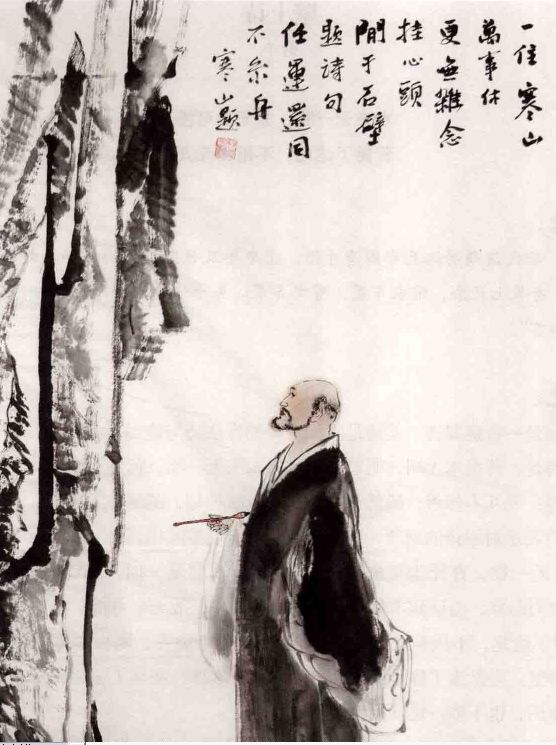 一住寒山
萬事休
更無雜念
挂心頭
閒于石壁
題詩句
任運還同
不系舟
寒山題